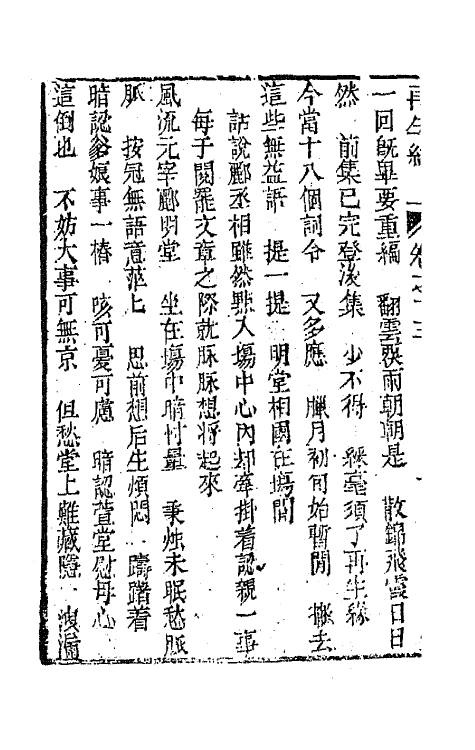 再生緣　卷之十三
一回既畢要重編　翻雲裂雨朝朝是　散錦飛霞日日
然　前集已完登後集　少不得　綵毫須了再生緣
今當十八個詞令　又多應　臘月初旬始暫閒　撇去
這些無益語　提一提　明堂相國在場間
話說酈丞相雖然點入場中心內却牽掛着認親一事
每子閱罷文章之際就脉脉想將起來
風流元宰酈明堂　坐在場中暗忖量　秉燭未眠愁脈
脈　按冠無語意茫上　思前想后生煩悶　躊躇着
暗認爹娘事一樁　咳可憂可慮　暗認萱堂慰母心
這倒也　不妨大事可無京　但愁堂上難藏隱　洩漏